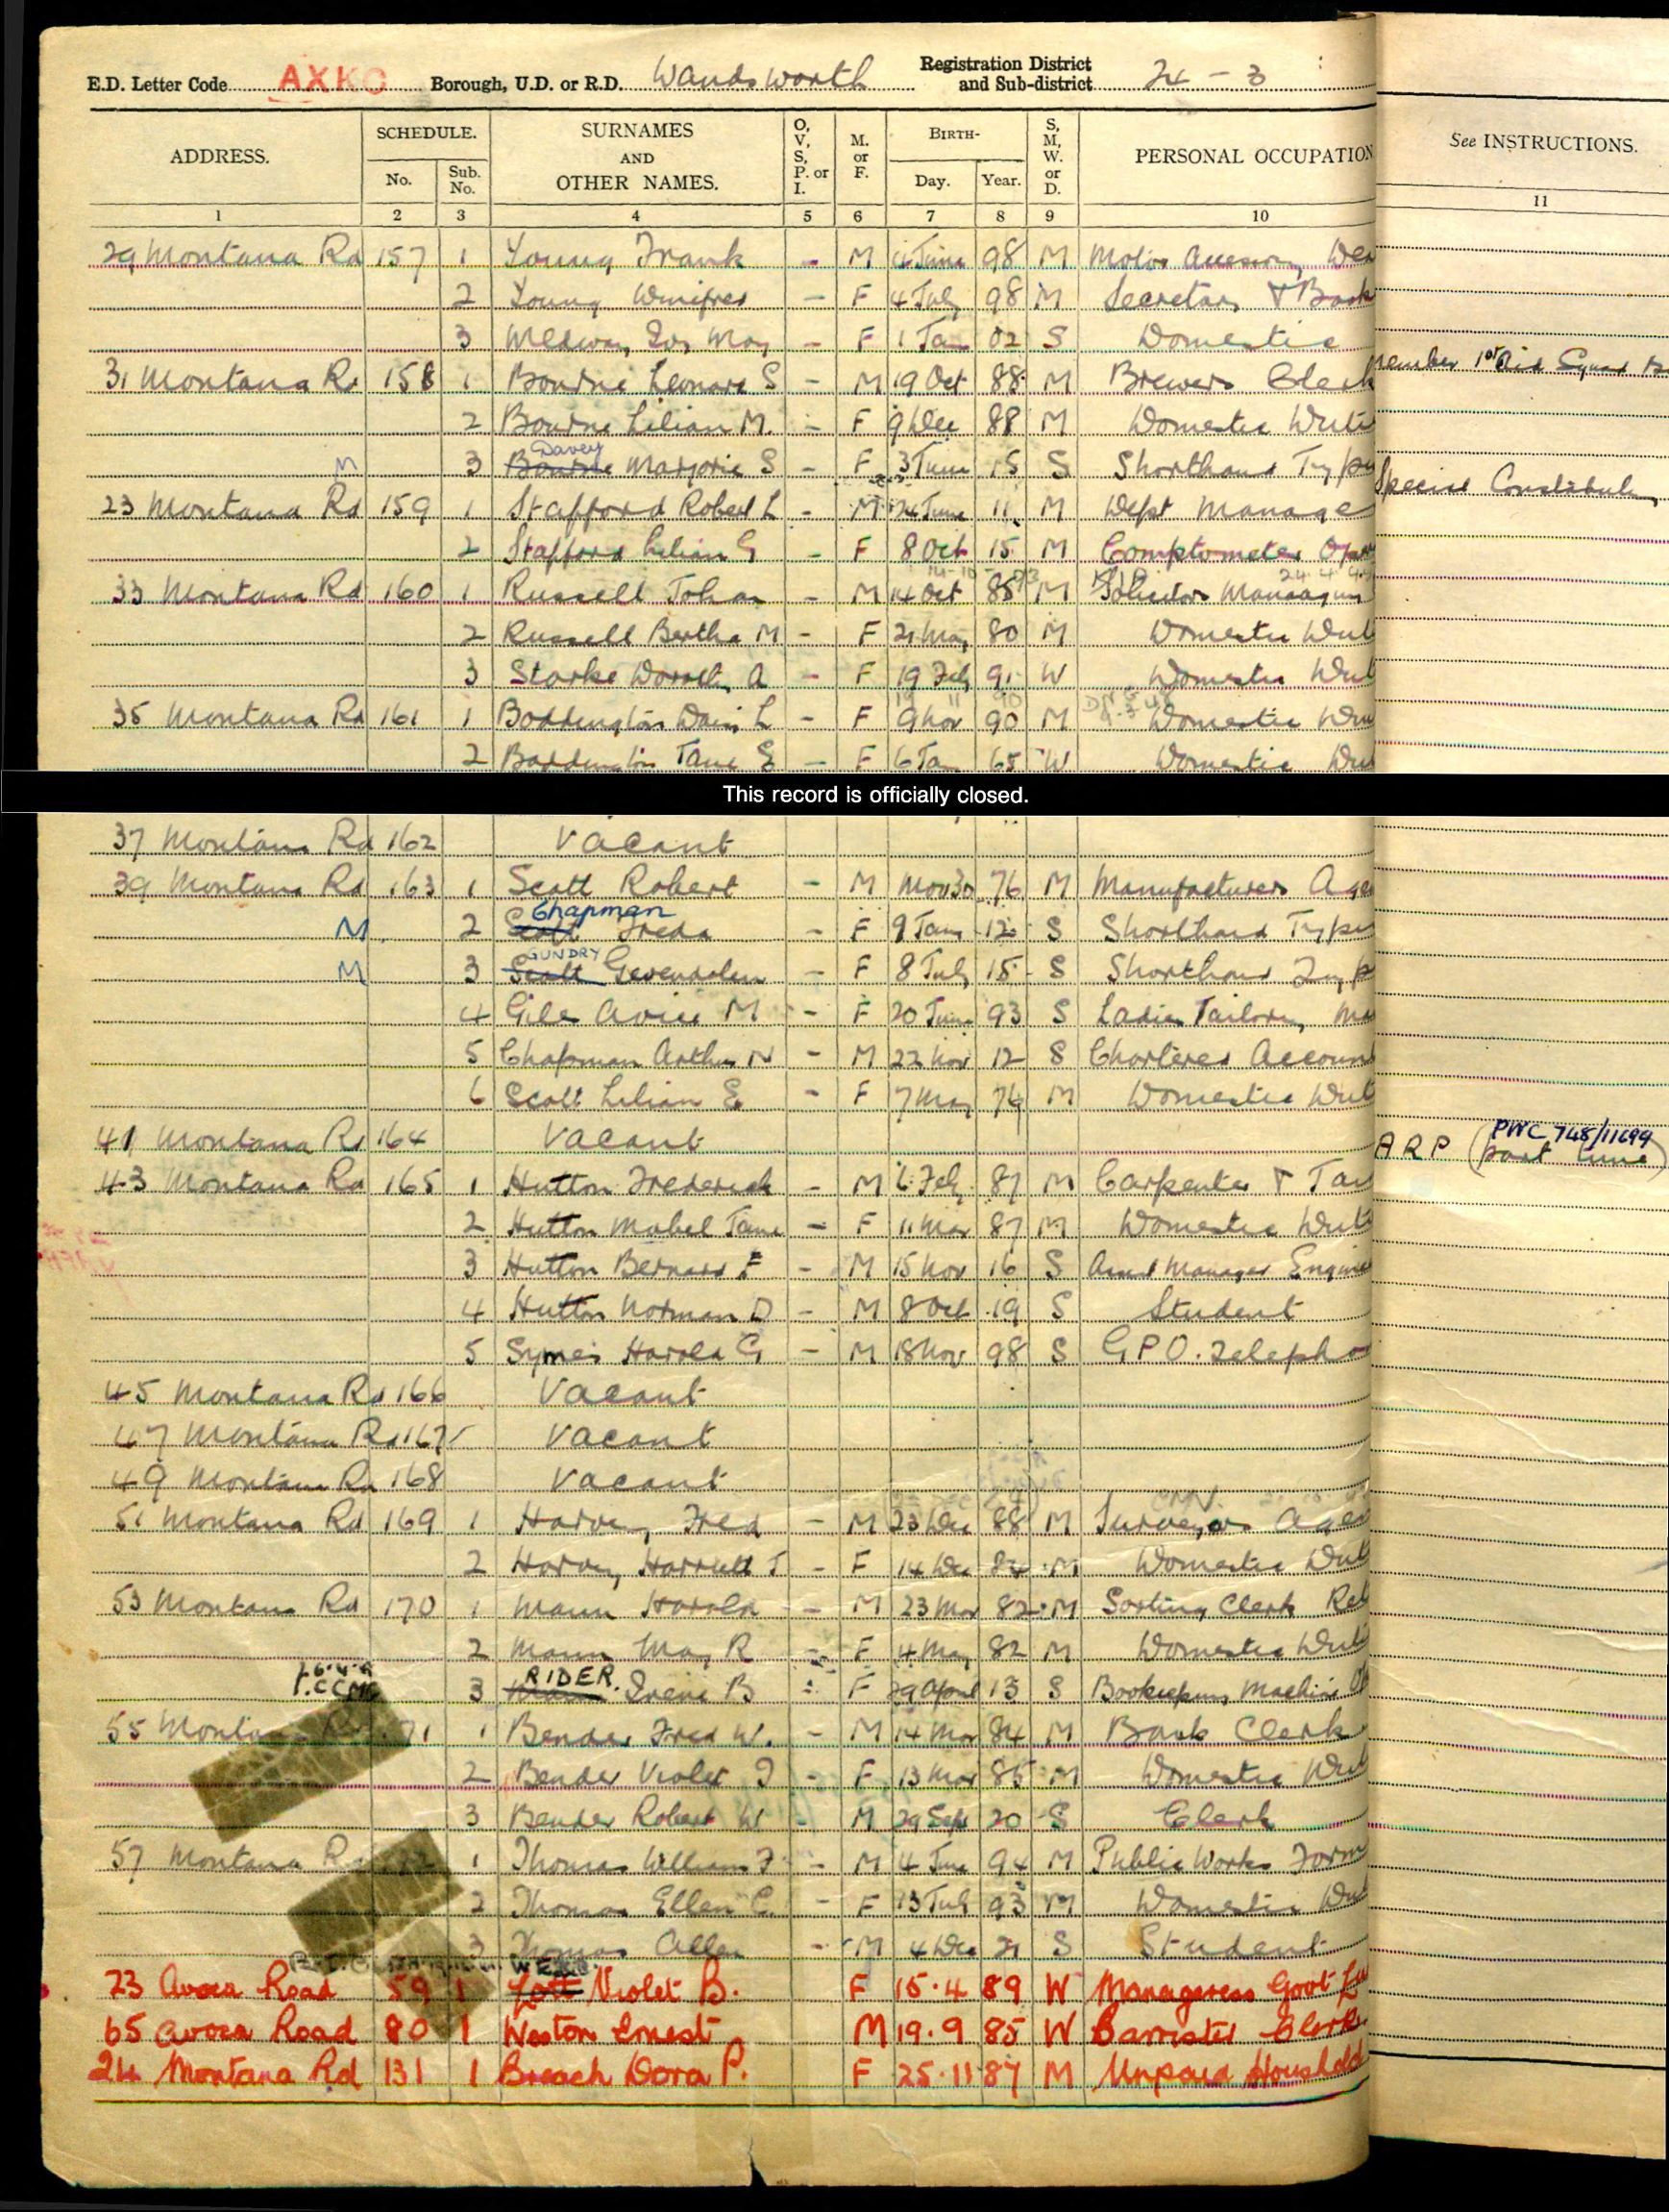 E.D. Letter Code AXKO Borough, U.D. or R.D. Wandsworth Registration District and Sub-district 24 - 3
ADDRESS. SCHEDULE. No. Sub. No. SURNAMES AND OTHER NAMES. O, V, S, P. or I. M. or F. BIRTH- Day. Year. S, M, W. or D. PERSONAL OCCUPATION See INSTRUCTIONS.
1 2 3 4 5 6 7 8 9 10 11
29 Montana Rd 157 1 Young Frank - M June 98 M Motor
2 Young Winifred - F 4 July 98 M Secretary & Book
3 May - F 1 Jan 02 S Domestic
31 Montana Rd 158 1 Bourne Leonard S - M 19 Oct 88 M Brewers Clerk member 1st Aid Squad
2 Bourne Lilian M. - F 9 Dec 88 M Domestic Duti
Davey
M 3 Bourne Marjorie S - F 3 June 15 S Shorthand Typi
23 Montana Rd 159 1 Stafford Robert L - M 24 June 11 M Dept Manage Special Constabulary
2 Stafford Lilian G - F 8 Oct 15 M Comptometer Op
33 Montana Rd 160 1 Russell John - M 14 Oct 85 M Managing
2 Russell Bertha M - F 21 May 80 M Domestic Duti
3 Starke Doroth A - F 19 Feb 91 W Domestic Duti
35 Montana Rd 161 1 Boddington L - F 9 Nov 90 M Domestic Duti
2 Boddington Jane E - F 6 Jan 65 W Domestic Duti
This record is officially closed.
37 Montana Rd 162 Vacant
39 Montana Rd 163 1 Scott Robert - M Nov 30 76 M Manufacturers Age
Chapman
M 2 Scott Freda - F 9 Jan 12 S Shorthand Typis
GUNDRY
M 3 Scott Gwendolen - F 8 July 15 S Shorthand Typ
4 Gile M - F 20 June 93 S Ladies Tailors, Ma
5 Chapman Arthur N - M 22 Nov 12 S Chartered Account
6 Scott Lilian E - F 7 May 74 M Domestic Duti
41 Montana Rd 164 Vacant
PWC 748/11699
ARP (part time)
43 Montana Rd 165 1 Hutton Frederick - M 6 Feb 87 M Carpenter &
2 Hutton Mabel Jane - F 11 Mar 87 M Domestic Duti
3 Hutton Bernard F - M 15 Nov 16 S Asst Manager Engine
4 Hutton Norman D - M 8 Oct 19 S Student
5 Symes Harold G - M 18 Nov 98 S G.P.O. Telepho
45 Montana Rd 166 Vacant
47 Montana Rd 167 Vacant
49 Montana Rd 168 Vacant
51 Montana Rd 169 1 Harvey Fred - M 23 Dec 88 M Surveyor Agen
2 Harvey Harriett J - F 14 Dec 84 M Domestic Duti
53 Montana Rd 170 1 Mann Harold - M 23 Mar 82 M Sorting Clerk Ret
2 Mann May R - F 4 May 82 M Domestic Duti
RIDER.
3 Mann Irene B - F 29 April 13 S Bookkeeping Machine Op
55 Montana Rd 171 1 Bender Fred W. - M 14 Mar 84 M Bank Clerk
2 Bender Violet J - F 13 Mar 85 M Domestic Duti
3 Bender Robert W - M 29 Sept 20 S Clerk
57 Montana R 1 Thomas William J - M 4 June 94 M Public Works Form
2 Thomas Ellen C. - F 13 July 93 M Domestic Du
3 Thomas Allen - M 4 Dec 21 S Student
73 Avoca Road 59 1 Violet B. F 15.4 89 W Manageress Govt
65 Avoca Road 80 1 Weston Ernest M 19.9 85 W Barrister Clerk
24 Montana Rd 131 1 Breach Dora P. F 25.11 87 M Unpaid Househld